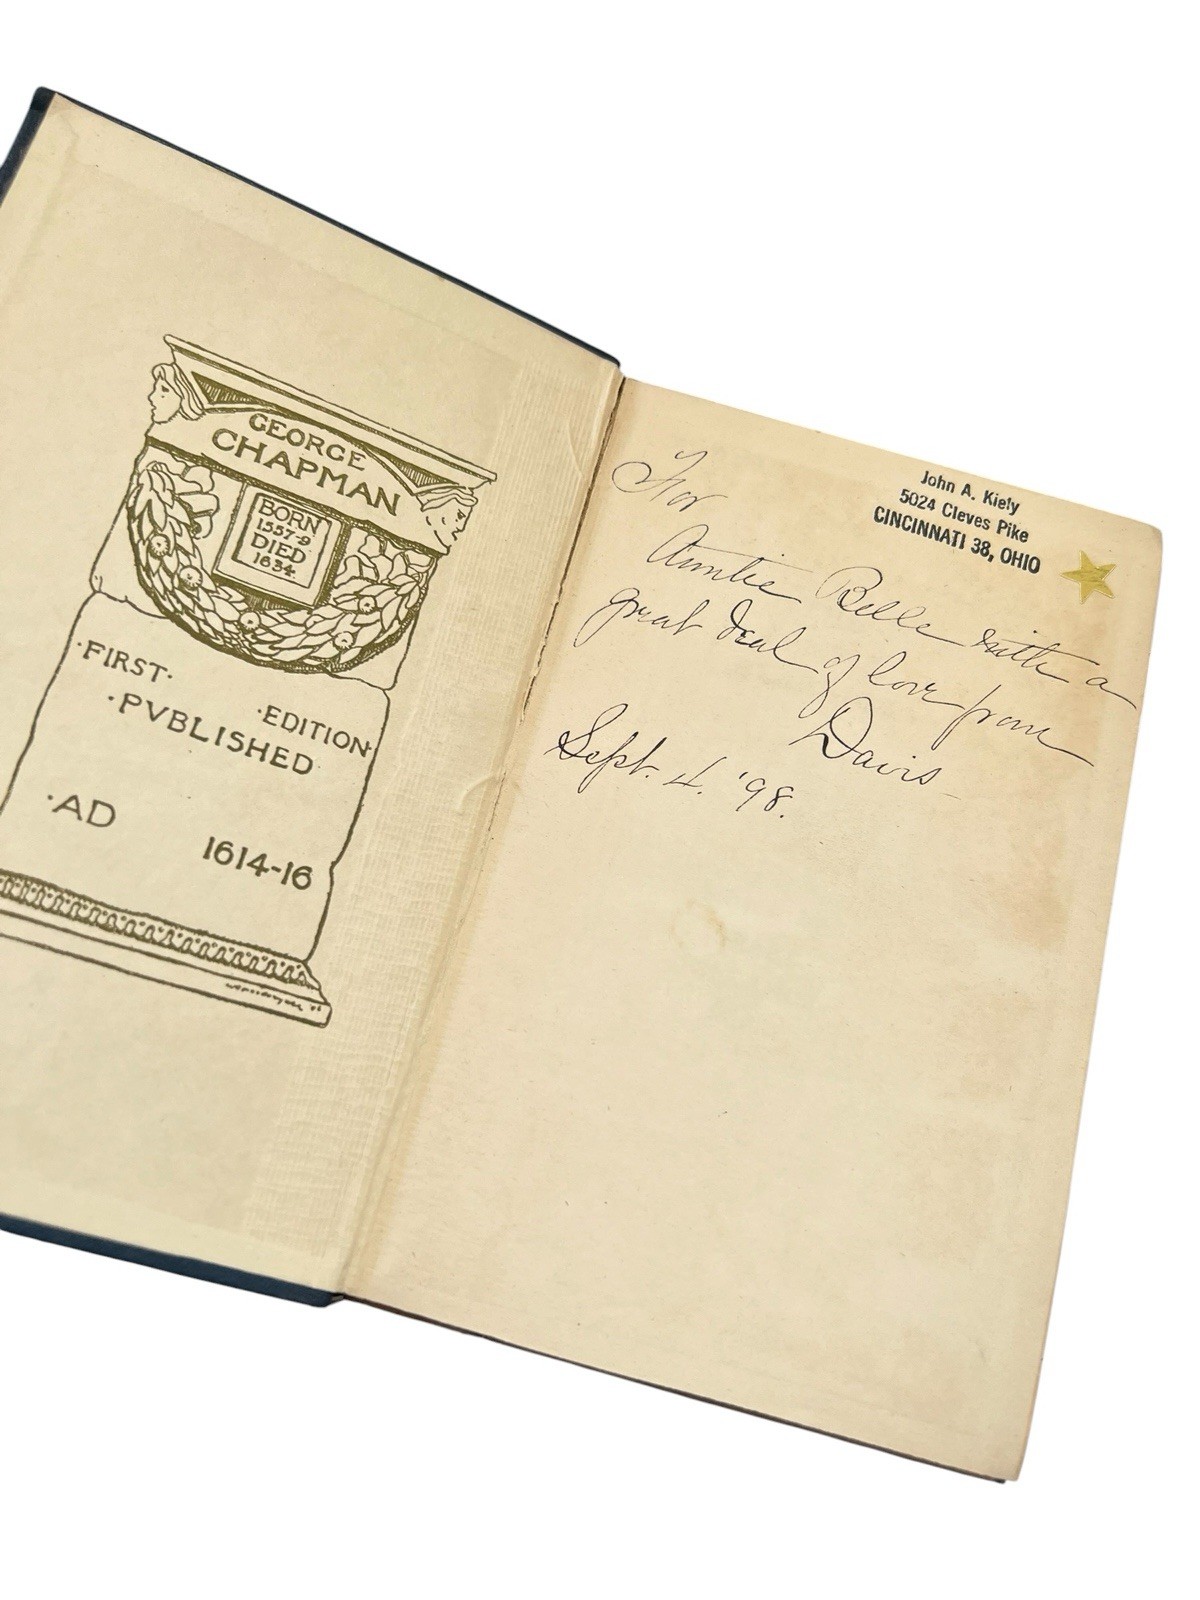 GEORGE
CHAPMAN
BORN
1557-9
DIED
1634
·FIRST· ·EDITION·
·PVBLISHED·
·AD 1614-16
John A. Kiely
5024 Cleves Pike
CINCINNATI 38, OHIO
For
Auntie Belle with a
great deal of love from
Davis
Sept. 4. '98.